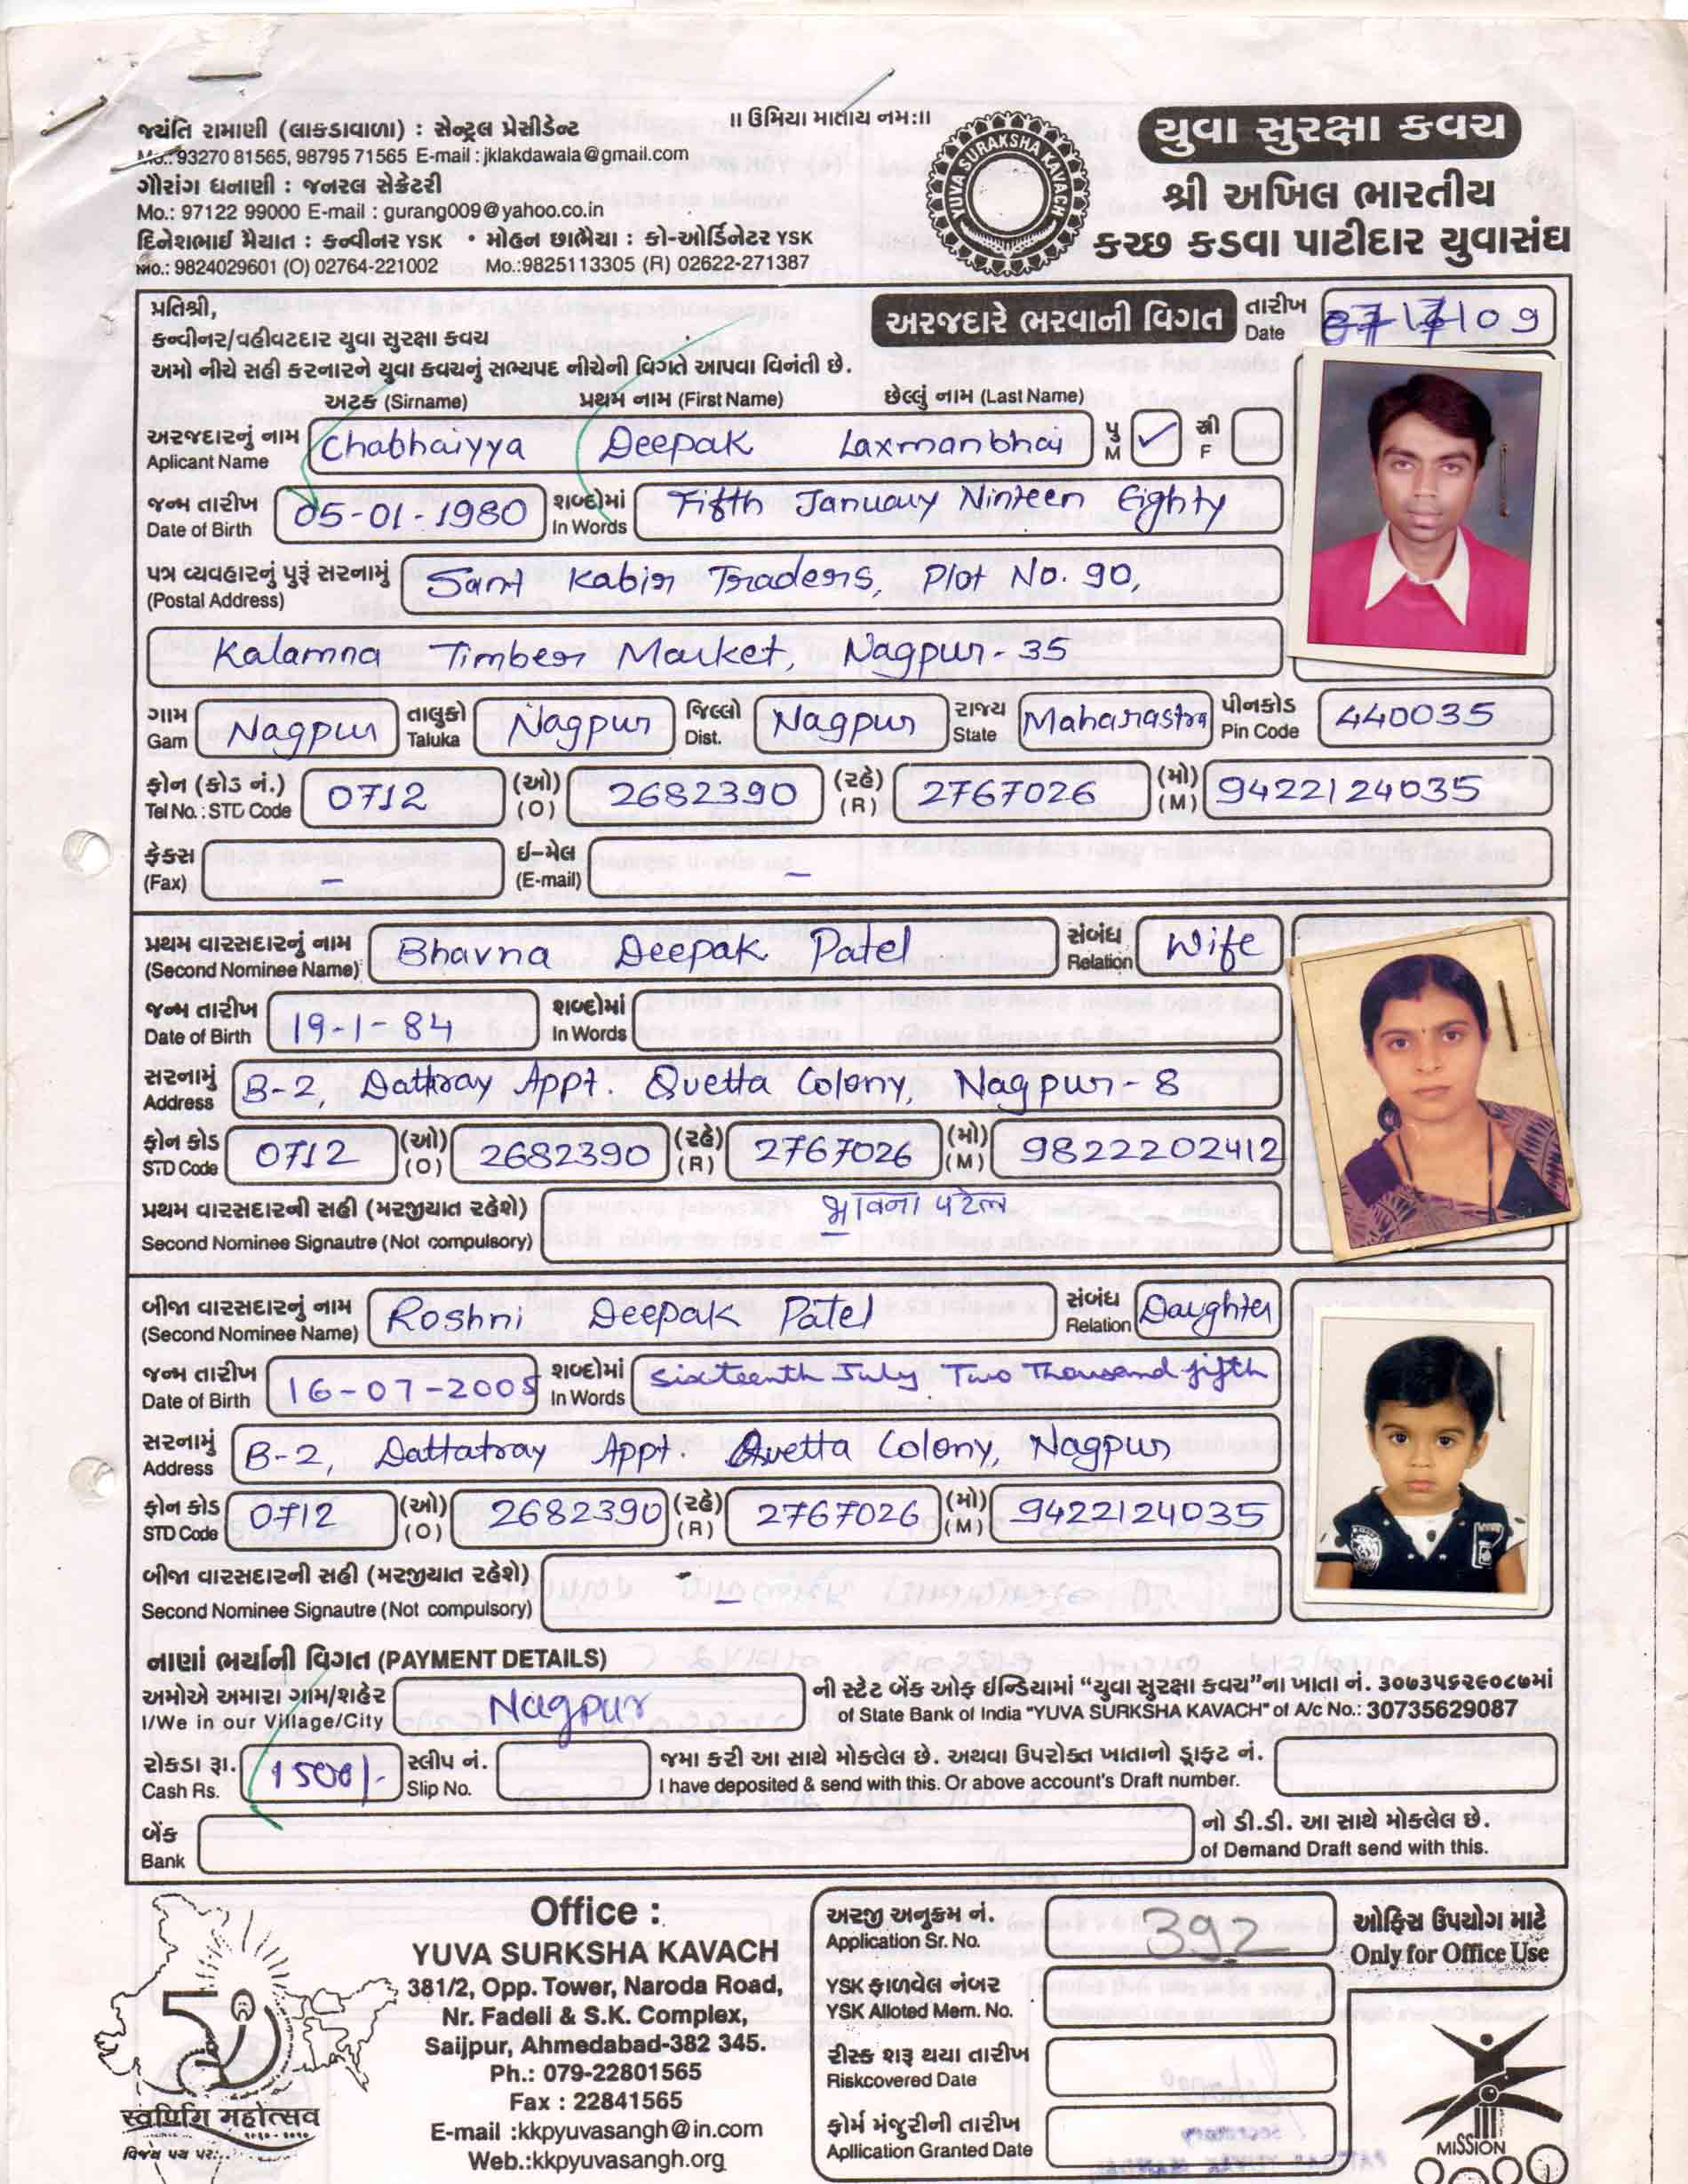 ॥ ઉમિયા માતાય નમઃ॥
જયંતિ રામાણી (લાકડાવાળા) : સેન્ટ્રલ પ્રેસીડેન્ટ
Mo.: 93270 81565, 98795 71565 E-mail : jklakdawala@gmail.com
ગૌરાંગ ધનાણી : જનરલ સેક્રેટરી
Mo.: 97122 99000 E-mail : gurang009@yahoo.co.in
દિનેશભાઈ મૈયાત : કન્વીનર YSK • મોહન છાભૈયા : કો-ઓર્ડિનેટર YSK
Mo.: 9824029601 (O) 02764-221002 Mo.:9825113305 (R) 02622-271387
YUVA SURAKSHA KAVACH
યુવા સુરક્ષા કવચ
શ્રી અખિલ ભારતીય
કચ્છ કડવા પાટીદાર યુવાસંઘ
પ્રતિશ્રી,
અરજદારે ભરવાની વિગત તારીખ Date /09
કન્વીનર/વહીવટદાર યુવા સુરક્ષા કવચ
અમો નીચે સહી કરનારને યુવા કવચનું સભ્યપદ નીચેની વિગતે આપવા વિનંતી છે.
અટક (Sirname) પ્રથમ નામ (First Name) છેલ્લું નામ (Last Name)
અરજદારનું નામ Aplicant Name Chabhaiyya Deepak Laxmanbhai પુ M ✓ સ્ત્રી F
જન્મ તારીખ Date of Birth 05-01-1980 શબ્દોમાં In Words Fifth January Ninteen Eighty
પત્ર વ્યવહારનું પુરૂં સરનામું (Postal Address) Sant Kabir Traders, Plot No. 90,
Kalamna Timber Market, Nagpur-35
ગામ Gam Nagpur તાલુકો Taluka Nagpur જિલ્લો Dist. Nagpur રાજ્ય State Maharastra પીનકોડ Pin Code 440035
ફોન (કોડ નં.) Tel No.: STD Code 0712 (ઓ) (O) 2682390 (રહે) (R) 2767026 (મો) (M) 9422124035
ફેકસ (Fax) – ઈ-મેલ (E-mail) –
પ્રથમ વારસદારનું નામ (Second Nominee Name) Bhavna Deepak Patel સંબંધ Relation Wife
જન્મ તારીખ Date of Birth 19-1-84 શબ્દોમાં In Words
સરનામું Address B-2, Dattray Appt. Quetta Colony, Nagpur-8
ફોન કોડ STD Code 0712 (ઓ) (O) 2682390 (રહે) (R) 2767026 (મો) (M) 9822202412
પ્રથમ વારસદારની સહી (મરજીયાત રહેશે) ભાવના પટેલ
Second Nominee Signautre (Not compulsory)
બીજા વારસદારનું નામ (Second Nominee Name) Roshni Deepak Patel સંબંધ Relation Daughter
જન્મ તારીખ Date of Birth 16-07-2005 શબ્દોમાં In Words Sixteenth July Two Thousand fifth
સરનામું Address B-2, Dattatray Appt. Quetta Colony, Nagpur
ફોન કોડ STD Code 0712 (ઓ) (O) 2682390 (રહે) (R) 2767026 (મો) (M) 9422124035
બીજા વારસદારની સહી (મરજીયાત રહેશે) –
Second Nominee Signautre (Not compulsory)
નાણાં ભર્યાની વિગત (PAYMENT DETAILS)
અમોએ અમારા ગામ/શહેર Nagpur ની સ્ટેટ બેંક ઓફ ઈન્ડિયામાં “યુવા સુરક્ષા કવચ”ના ખાતા નં. ૩૦૭૩૫૬૨૯૦૮૭માં
I/We in our Village/City of State Bank of India "YUVA SURKSHA KAVACH" of A/c No.: 30735629087
રોકડા રૂા. Cash Rs. 1500/- સ્લીપ નં. Slip No. જમા કરી આ સાથે મોકલેલ છે. અથવા ઉપરોક્ત ખાતાનો ડ્રાફ્ટ નં.
I have deposited & send with this. Or above account's Draft number.
બેંક Bank નો ડી.ડી. આ સાથે મોકલેલ છે.
of Demand Draft send with this.
Office :
YUVA SURKSHA KAVACH
381/2, Opp. Tower, Naroda Road,
Nr. Fadeli & S.K. Complex,
Saijpur, Ahmedabad-382 345.
Ph.: 079-22801565
Fax : 22841565
E-mail :kkpyuvasangh@in.com
Web.:kkpyuvasangh.org
50
સ્વર્ણિમ મહોત્સવ
વિજય પથ પર
અરજી અનુક્રમ નં. Application Sr. No. 392
ઓફિસ ઉપયોગ માટે
Only for Office Use
YSK ફાળવેલ નંબર
YSK Alloted Mem. No.
રીસ્ક શરૂ થયા તારીખ
Riskcovered Date
ફોર્મ મંજુરીની તારીખ
Apllication Granted Date
MISSION